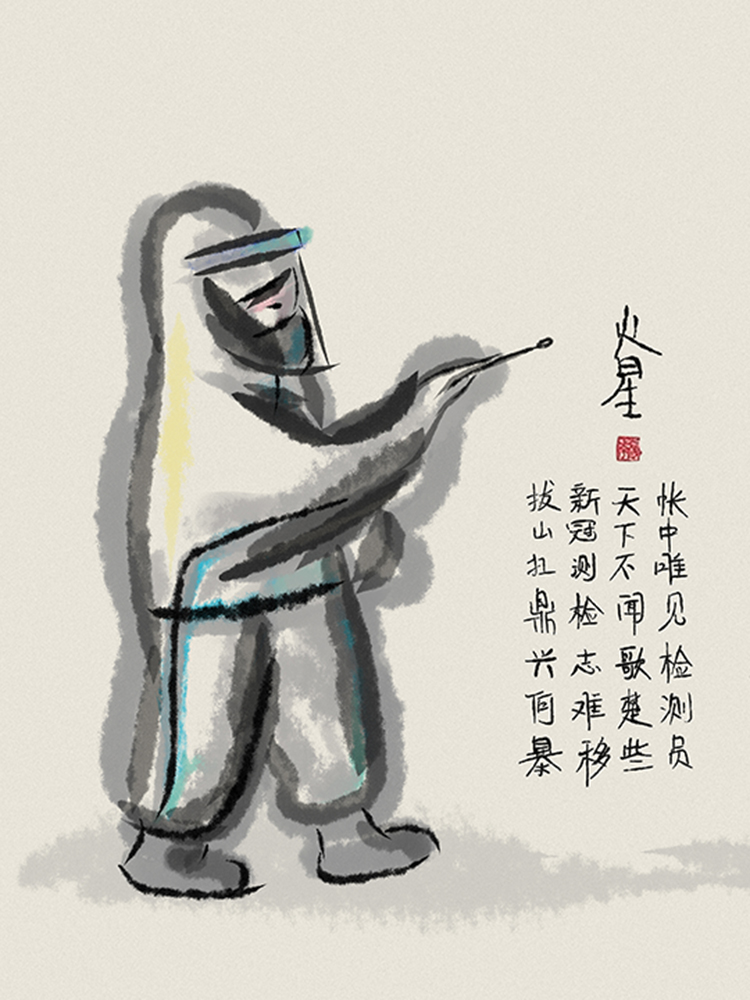 火星
帐中唯见检测员
天下不闻歌楚些
新冠测检志难移
拔山扛鼎兴何暴